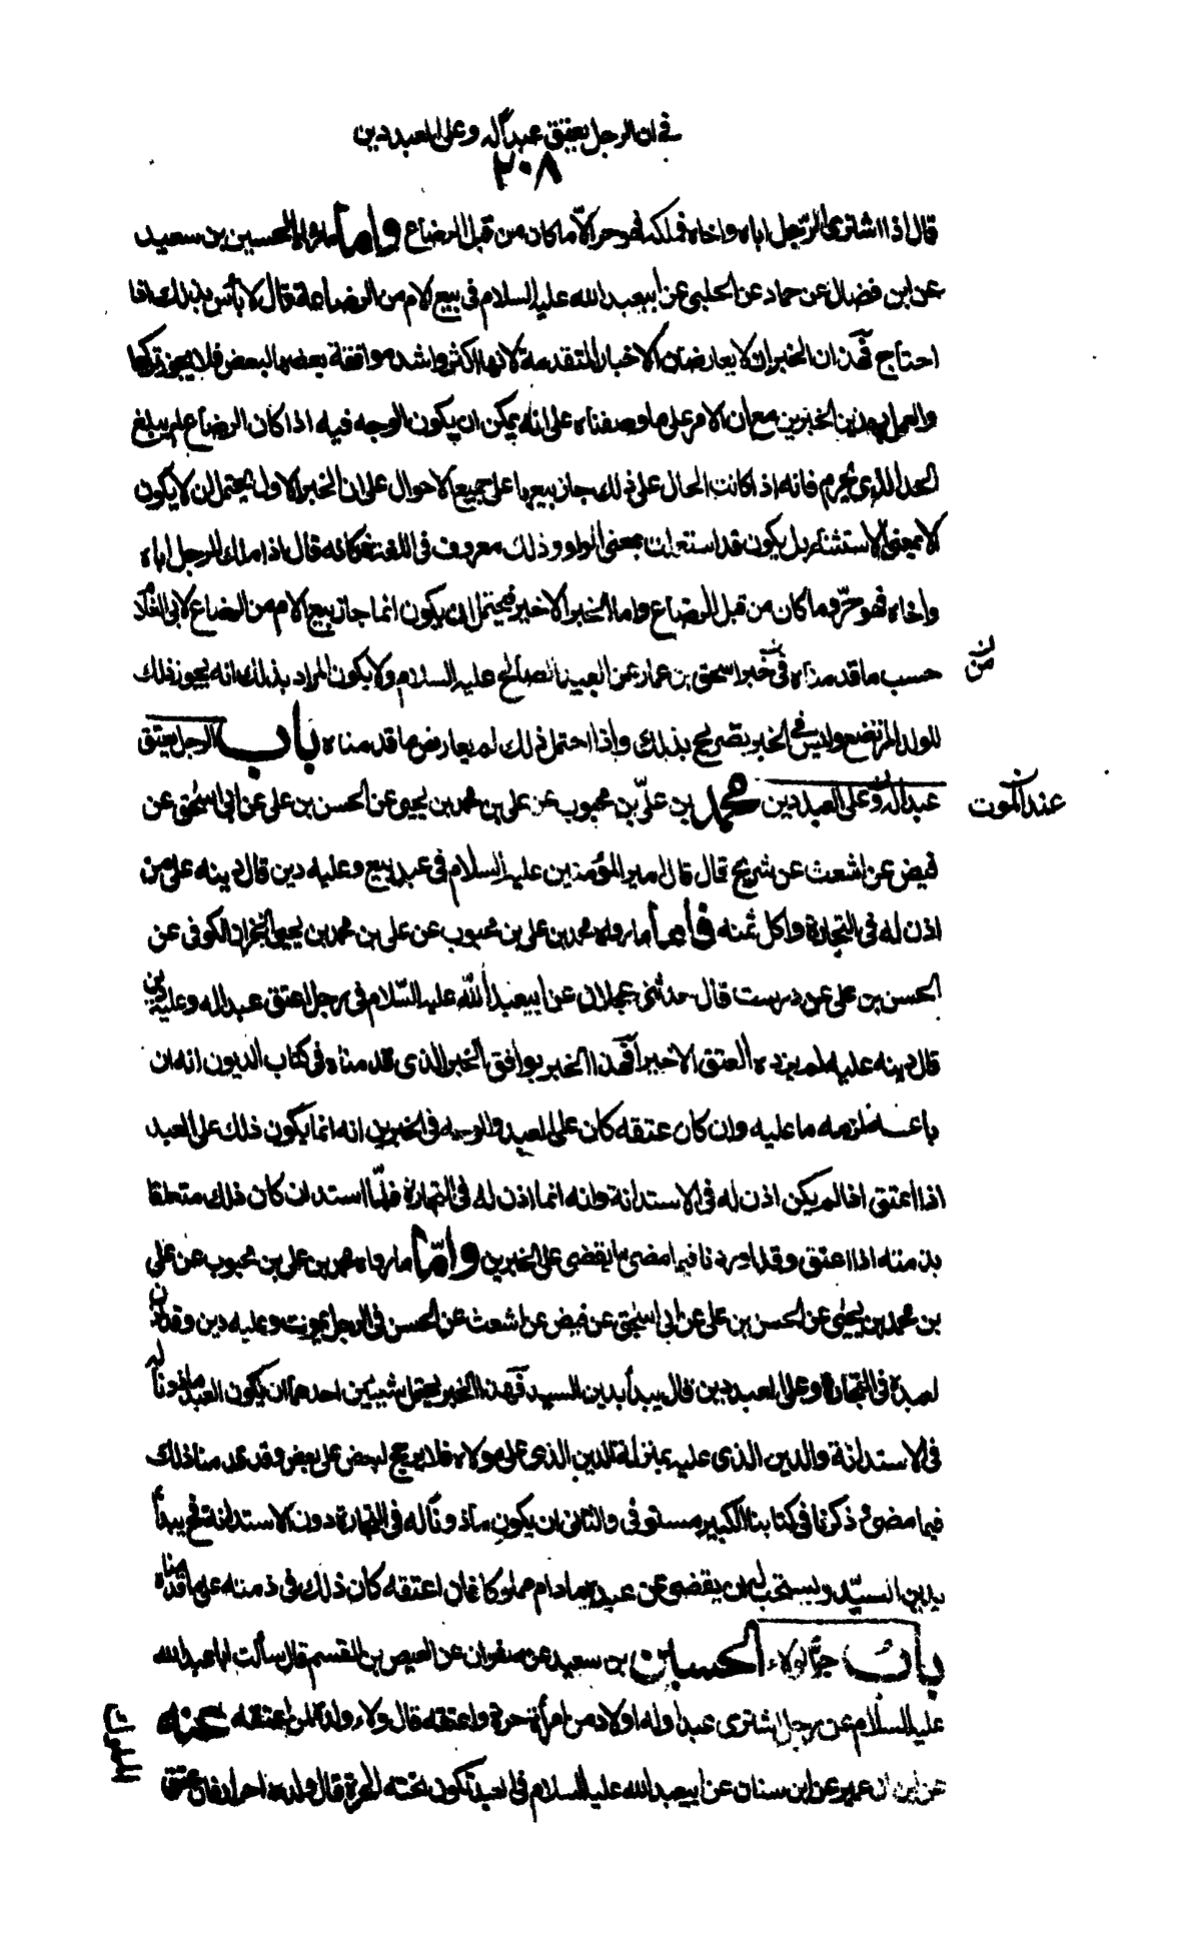 في ان الرجل يعتق عبدا له وعلى العبد دين
٢٠٨
قال اذا اشترى الرجل اباه واخاه فملكه فهو حر الا ما كان من قبل الرضاع واما ما رواه الحسين بن سعيد
عن ابن فضال عن حماد عن الحلبي عن ابيعبد الله عليه السلام في بيع الام من الرضاعة قال لا بأس بذلك اذا
احتاج فهذان الخبران لا يعارضان الاخبار المتقدمة لانها اكثر واشد موافقة بعضها لبعض فلا يجوز تركها
والعمل بهذين الخبرين مع ان الامر على ما وصفناه على انه يمكن ان يكون الوجه فيه اذا كان الرضاع لم يبلغ
الحد الذي يحرم فانه اذا كانت الحال على ذلك جاز بيعها على جميع الاحوال على ان الخبر الاول يحتمل ان لا يكون
الا بمعنى الاستثناء بل يكون قد استعملت بمعنى الواو وذلك معروف في اللغة فكانه قال اذا ملك الرجل اباه
واخاه فهو حر وما كان من قبل الرضاع واما الخبر الاخير فيحتمل ان يكون انما جاز بيع الام من الرضاع لابي الغلام
حسب ما قدمناه في خبر اسحق بن عمار عن العبد الصالح عليه السلام ولا يكون المراد بذلك انه يجوز ذلك
من
للولد المرتضع وليس في الخبر تصريح بذلك واذا احتمل ذلك لم يعارض ما قدمناه باب الرجل يعتق
عبدا له وعلى العبد دين محمد بن علي بن محبوب عن علي بن محمد بن يحيى عن الحسن بن علي عن ابي اسحق عن
عند الموت
فيض عن اشعث عن شريح قال قال امير المؤمنين عليه السلام في عبد بيع وعليه دين قال دينه على من
اذن له في التجارة واكل ثمنه فأما ما رواه محمد بن علي بن محبوب عن علي بن محمد بن يحيى الخزاز الكوفي عن
الحسن بن علي عن درست قال حدثني عجلان عن ابيعبد الله عليه السلام في رجل اعتق عبدا له وعليه دين
قال دينه عليه لم يزده العتق الا خيرا فهذا الخبر يوافق الخبر الذي قدمناه في كتاب الديون انه ان
باعه لزمه ما عليه وان كان عتقه كان على العبد والوجه في الخبرين انه انما يكون ذلك على العبد
اذا اعتق اذا لم يكن اذن له في الاستدانة وانه انما اذن له في التجارة فلما استدان كان ذلك متعلقا
بذمته اذا اعتق وقد اوردنا فيما مضى ما يقضى على الخبرين واما ما رواه محمد بن علي بن محبوب عن علي
بن محمد بن يحيى عن الحسن بن علي عن ابي اسحق عن فيض عن اشعث عن الحسن في الرجل يموت وعليه دين وقد اذن
لعبده في التجارة وعلى العبد دين قال يبدأ بدين السيد فهذا الخبر يحتمل شيئين احدهما ان يكون العبد ماذونا له
في الاستدانة والدين الذي عليه بمنزلة الدين الذي على مولاه فلا يرجح لبعض على بعض وقد قدمنا ذلك
فيما مضى وذكرنا في كتابنا الكبير مستوفى والثاني ان يكون ماذونا له في التجارة دون الاستدانة فح يبدأ
بدين السيد ويستحب له ان يقضى عن عبده ما دام مملوكا فان اعتقه كان ذلك في ذمته على ما قدمناه
باب جر الولاء الحسين بن سعيد عن صفوان عن العيص بن القسم قال سألت ابا عبد الله
عليه السلام عن رجل اشترى عبدا وله اولاد من امرأة حرة واعتقه قال ولاء ولده لمن اعتقه عنه
عن ابن ابي عمير عن ابن سنان عن ابيعبد الله عليه السلام في العبد تكون تحته الحرة قال ولده احرار فان عتق
المملوك